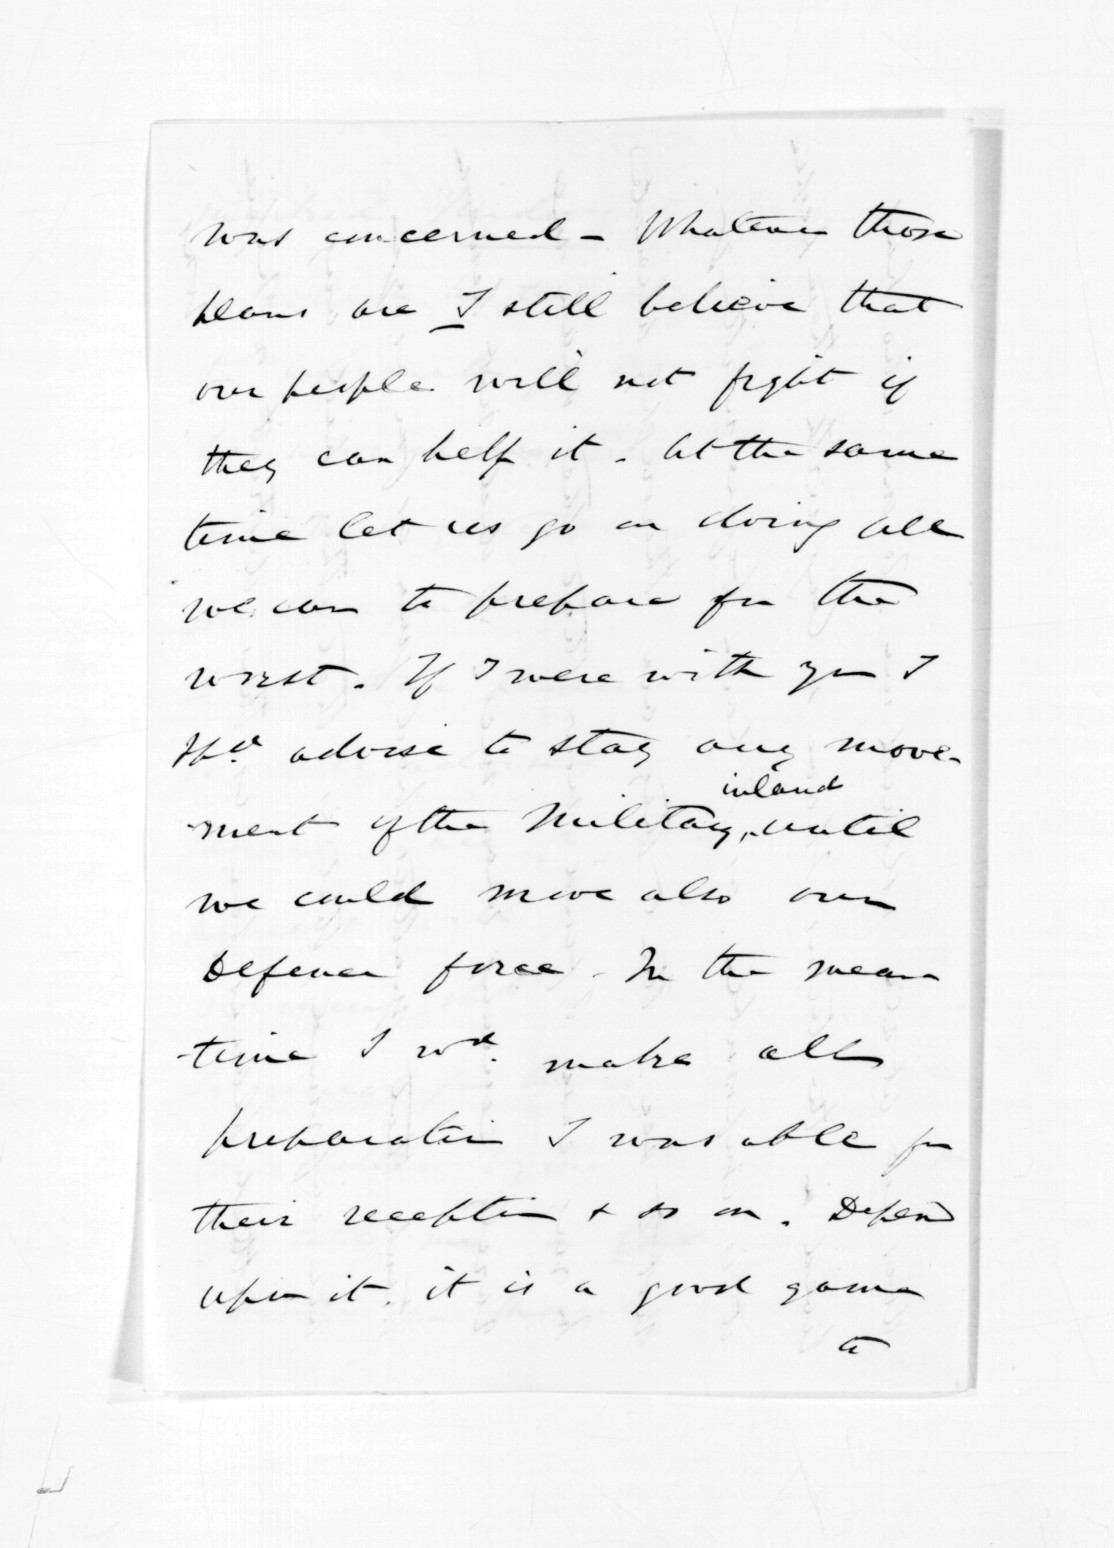 was concerned - Whatever those
plans are I still believe that
our people will not fight if
they can help it. At the same
time let us go on doing all
we can to prepare for the
worst. If I were with you I
Wd. advise to stay any move-
ment of the Military, inland until
we could move also our
Defence force. In the mean
time I wd. make all
preparation I was able for
their reception & so on. Depend
upon it, it is a good game
to